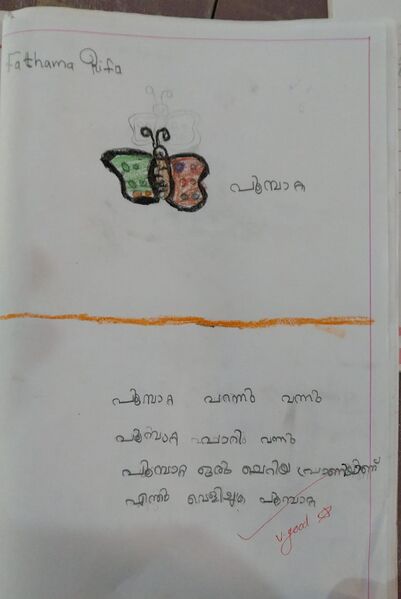 Fathama Rifa
പൂമ്പാറ്റ
പൂമ്പാറ്റ പറന്നു വന്നു
പൂമ്പാറ്റ പാറി വന്നു
പൂമ്പാറ്റ ഒരു ചെറിയ പ്രാണിയാണ്
പൂമ്പാറ്റ
v good